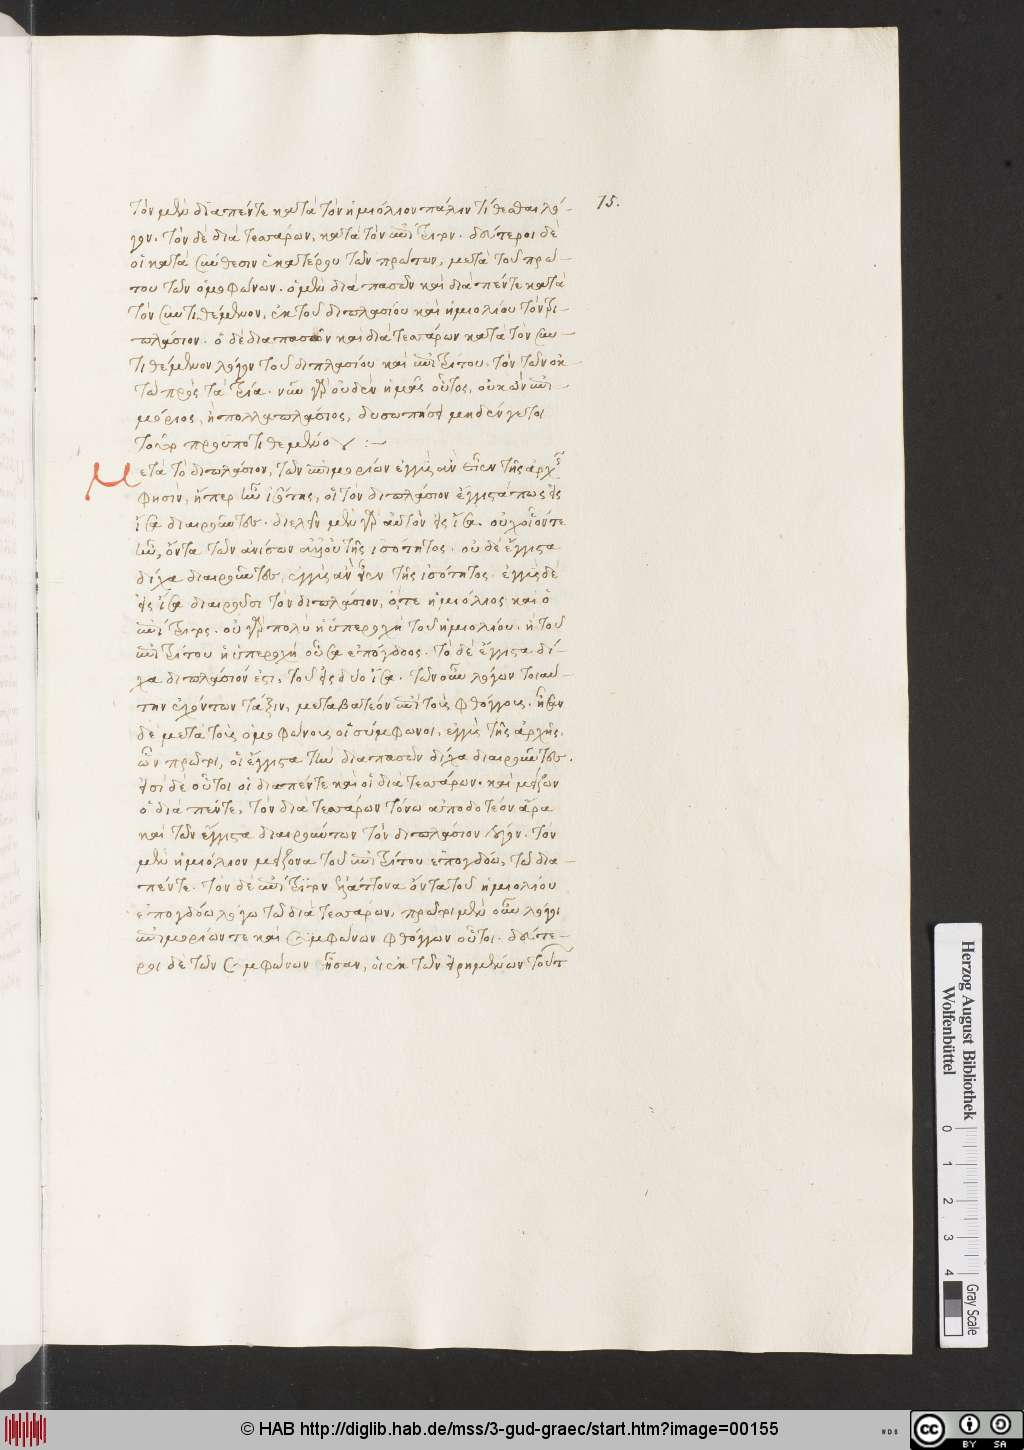 τὸν μὲν διαπέντε κατὰ τὸν ἡμιόλιον πάλιν τίθεσθαι λό-
75.
γον. τὸν δὲ διὰ τεσσάρων, κατὰ τὸν ἐπίτριτον. δεύτεροι δὲ
οἱ κατὰ σύνθεσιν ἑκατέρου τῶν πρώτων, μετὰ τοῦ πρώ-
του τῶν ὁμοφώνων. ὁ μὲν διὰ πασῶν καὶ διὰ πέντε κατὰ
τὸν συντιθέμενον, ἐκ τοῦ διπλασίου καὶ ἡμιολίου τὸν τρι-
πλάσιον. ὁ δὲ διαπασῶν καὶ διὰ τεσσάρων κατὰ τὸν συν
τιθέμενον λόγον τοῦ διπλασίου καὶ ἐπιτρίτου. τὸν τῶν ὀκ-
τὼ πρὸς τὰ τρία. νῦν γὰρ οὐδὲν ἡμᾶς οὗτος, οὐκ ὢν ἐπι
μόριος, ἢ πολλαπλάσιος, δυσωπήσει μηδέν γε τοι
μετὰ τὸ διπλάσιον, τῶν ἐπιμορίων ἐγγὺς ἂν εἶεν τῆς ἀρχῆς
φησὶν, ἥπερ ἦν ἰσότης, οἱ τὸν διπλάσιον ἔγγιστά πως εἰς
ἴσα διαιροῦντες. διελεῖν μὲν γὰρ αὐτὸν εἰς ἴσα. οὐχ οἷόν τε
ἦν, ὄντα τῶν ἀνίσων ἀλλ' οὐ τῆς ἰσότητος. οἱ δὲ ἔγγιστα
δίχα διαιροῦντες, ἐγγὺς ἂν εἶεν τῆς ἰσότητος. ἐγγὺς δὲ
εἰς ἴσα διαιροῦσι τὸν διπλάσιον, ὅ,τε ἡμιόλιος καὶ ὁ
ἐπίτριτος. οὐ γὰρ πολὺ ἡ ὑπεροχὴ τοῦ ἡμιολίου. ἡ τοῦ
ἐπιτρίτου ἡ ὑπεροχὴ οὖσα ἐπόγδοος. τὸ δὲ ἔγγιστα δί-
χα διπλάσιόν ἐστι, τοῦ εἰς δύο ἴσα. τῶν οὖν λόγων τοιαύ-
την ἐχόντων τάξιν, μεταβατέον ἐπὶ τοὺς φθόγγους. ἦσαν
δὲ μετὰ τοὺς ὁμοφώνους οἱ σύμφωνοι, ἐγγὺς τῆς ἀρχῆς.
ὧν πρῶτοι, οἱ ἔγγιστα τὴν διαπασῶν δίχα διαιροῦντες.
εἰσὶ δὲ οὗτοι οἱ διαπέντε καὶ οἱ διὰ τεσσάρων. καὶ μείζων
ὁ διὰ πέντε, τὸν διὰ τεσσάρων τόνω ἀποδοτέον ἄρα
καὶ τῶν ἔγγιστα διαιρούντων τὸν διπλάσιον λόγον. τὸν
μὲν ἡμιόλιον μείζονα τοῦ ἐπιτρίτου ἐπογδόω, τῶ δια-
πέντε. τὸν δὲ ἐπίτριτον ἐλάττονα ὄντα τοῦ ἡμιολίου
ἐπογδόω λόγω τῶ διὰ τεσσάρων, πρῶτοι μὲν οὖν λόγοι
ἐπιμορίων τε καὶ συμφώνων φθόγγων οὗτοι. δεύτε-
ροι δὲ τῶν συμφώνων ἦσαν, οἱ ἐκ τῶν εἰρημένων τούτ
Herzog August Bibliothek
Wolfenbüttel
0 1 2 3 4
Gray Scale
© HAB http://diglib.hab.de/mss/3-gud-graec/start.htm?image=00155
WDB
cc BY SA